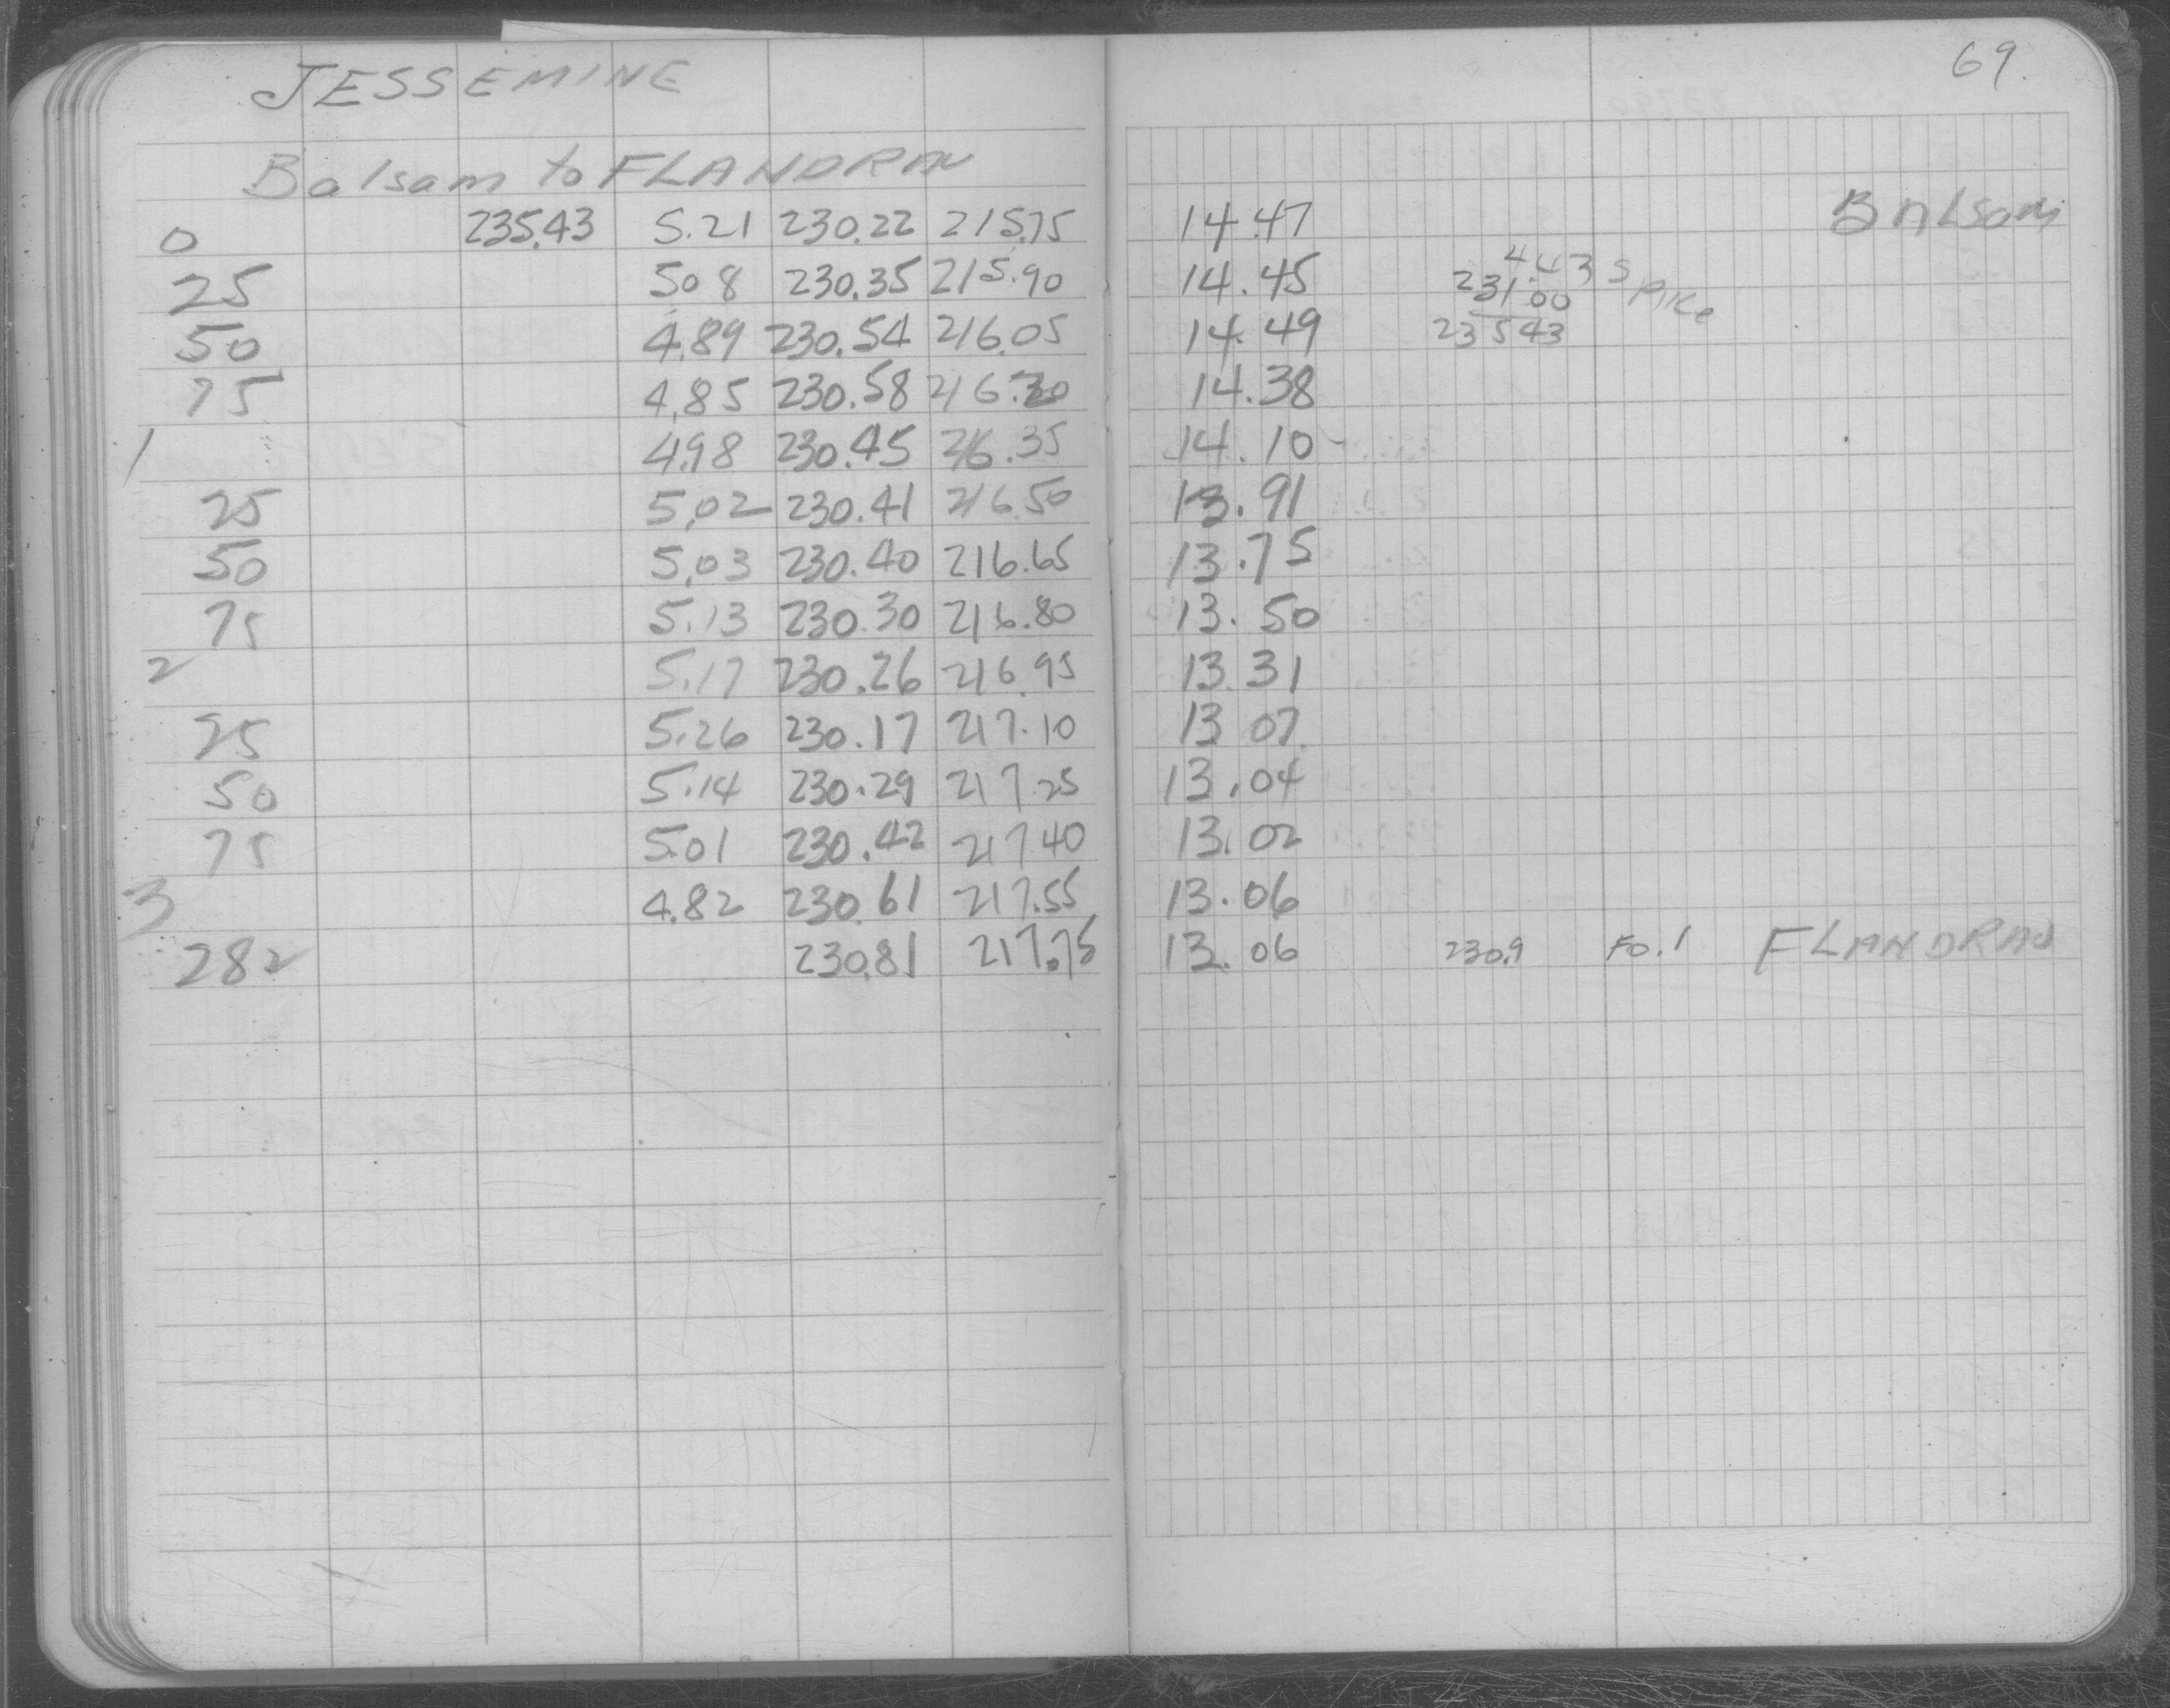 JESSEMINE
69.
Balsam to FLANDRAU
0 235.43 5.21 230.22 215.75 14.47 BALsam
25 5.08 230.35 215.90 14.45 4.43 SPIKE
231.00
50 4.89 230.54 216.05 14.49 235.43
75 4.85 230.58 14.38
1 4.98 230.45 216.35 14.10
25 5.02 230.41 216.50 13.91
50 5.03 230.40 216.65 13.75
75 5.13 230.30 216.80 13.50
2 5.17 230.26 216.95 13.31
25 5.26 230.17 217.10 13 07
50 5.14 230.29 217 25 13.04
75 5.01 230.42 217.40 13.02
3 4.82 230.61 217.55 13.06
282 230.81 217.75 13.06 230.9 Fo.1 FLANDRAU